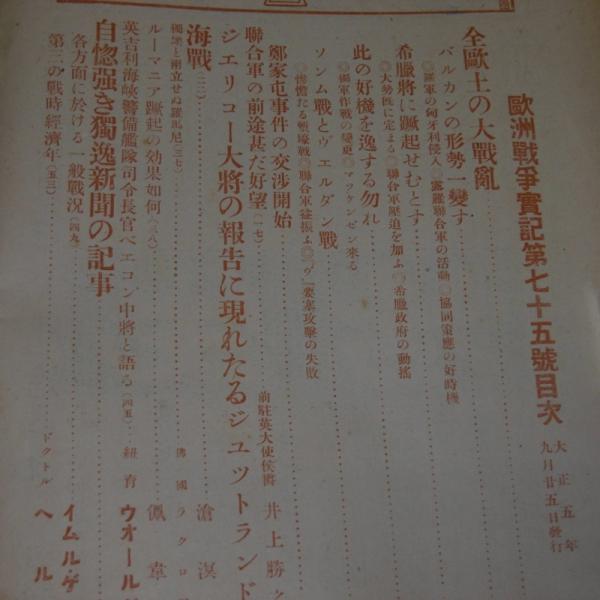 歐洲戰爭實記第七十五號目次
大正五年
九月廿五日發行
全歐土の大戰亂
バルカンの形勢一變す
◎羅軍の匈牙利侵入◎露羅聯合軍の活動◎協同策應の好時機
希臘將に蹶起せむとす
◎大勢既に定まる◎聯合軍壓迫を加ふ◎希臘政府の動搖
此の好機を逸する勿れ
◎獨軍作戰の變更◎マツケンゼン來る
ソンム戰とヴエルダン戰
◎慘憺たる塹壕戰◎聯合軍益振ふ◎ヴ」要塞攻擊の失敗
鄭家屯事件の交涉開始
聯合軍の前途甚だ好望(一七)
前駐英大使侯爵
井上勝之
ジエリコー大將の報告に現れたるジユットランド
海戰(二二)
滄溟
獨墺と兩立せぬ羅馬尼(三七)
佛國
ラクロ
ルーマニア蹶起の効果如何(三八)
佩韋
英吉利海峽警備艦隊司令長官ベエコン中將と語る(四五)
紐育
ウオール
自惚强き獨逸新聞の記事
各方面に於ける一般戰況(四九)
イムル・ゲ
第三の戰時經濟年(五三)
ドクトル
ヘル